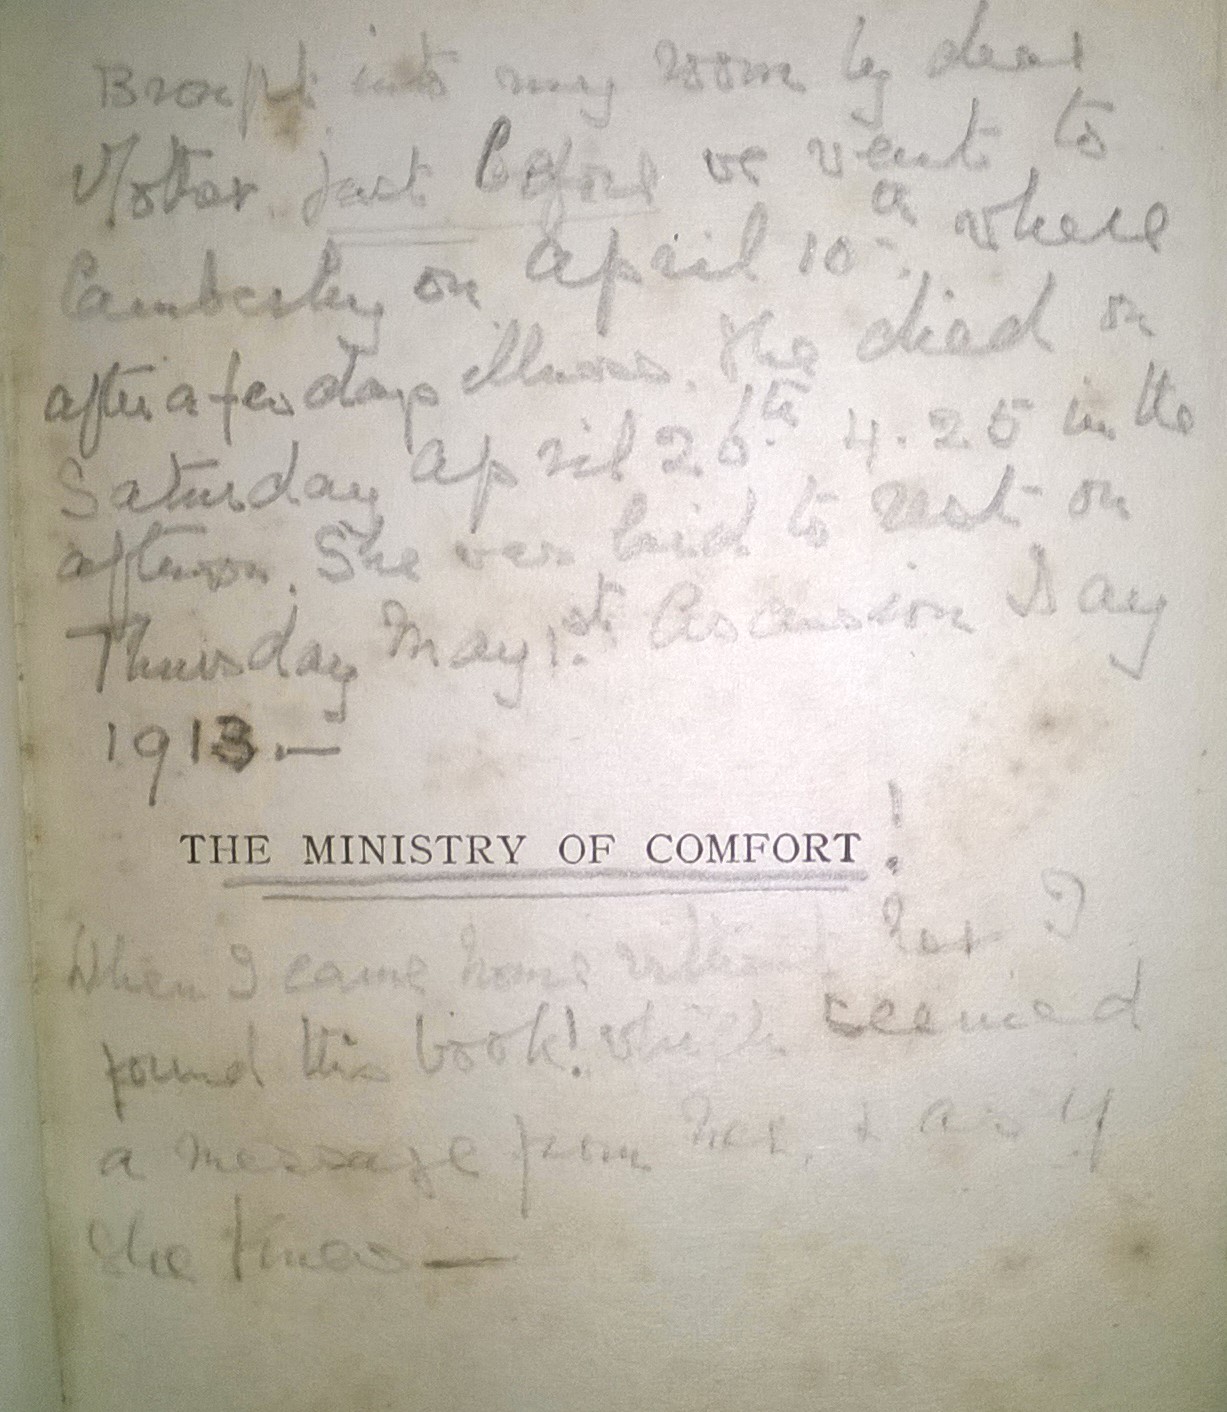 Brought into my room by dear
Mother just before we went to
Camberley on April 10th, where
after a few days illness. She died on
Saturday April 26th 4.25 in the
afternoon. She was laid to rest on
Thursday May 1st. Ascension Day
1913.—
THE MINISTRY OF COMFORT!
When I came home without her I
found this book! which seemed
a message from her, & as if
she knew —